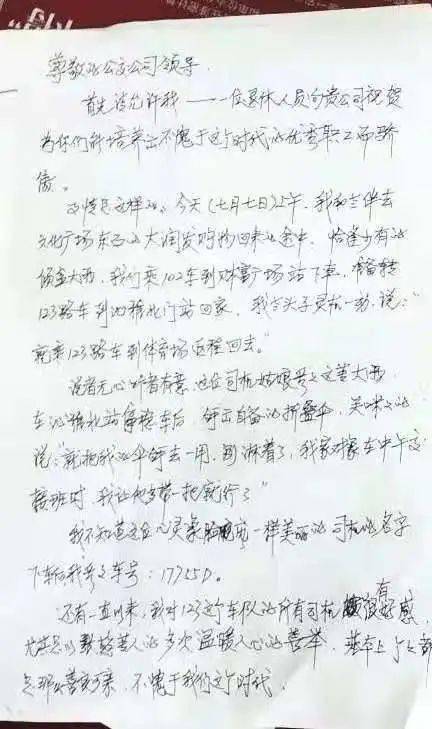 尊敬的公交公司领导
首先请允许我——一位退休人员向贵公司祝贺
为你们能培养出不愧于这个时代的优秀职工而骄
傲。
事情是这样的。今天(七月七日)上午,我和老伴去
文化广场东的大润发购物回来的途中,恰逢少有的
倾盆大雨,我们乘102车到财富广场站下车,准备转
123路车到 北门站回家,我老头子灵机一动,说:“
就乘123路车到体育场 回去。”
说者无心听者有意,这位司机姑娘 大雨
车 站停稳车后,拿出自备的折叠伞,笑眯眯的
说:“就把我的伞拿去一用,别淋着了,我家对象在中午交
接班时,我让他多带一把就行了”
我不知道这位心灵 一样美丽的司机的名字
下车后我 车号:17725D。
还有一直以来,我对123这个车队的所有司机 很有好感
尤其是 人的多次温暖人心的善举,基本上个个都
是那么喜 可亲,不愧于我们这个时代。